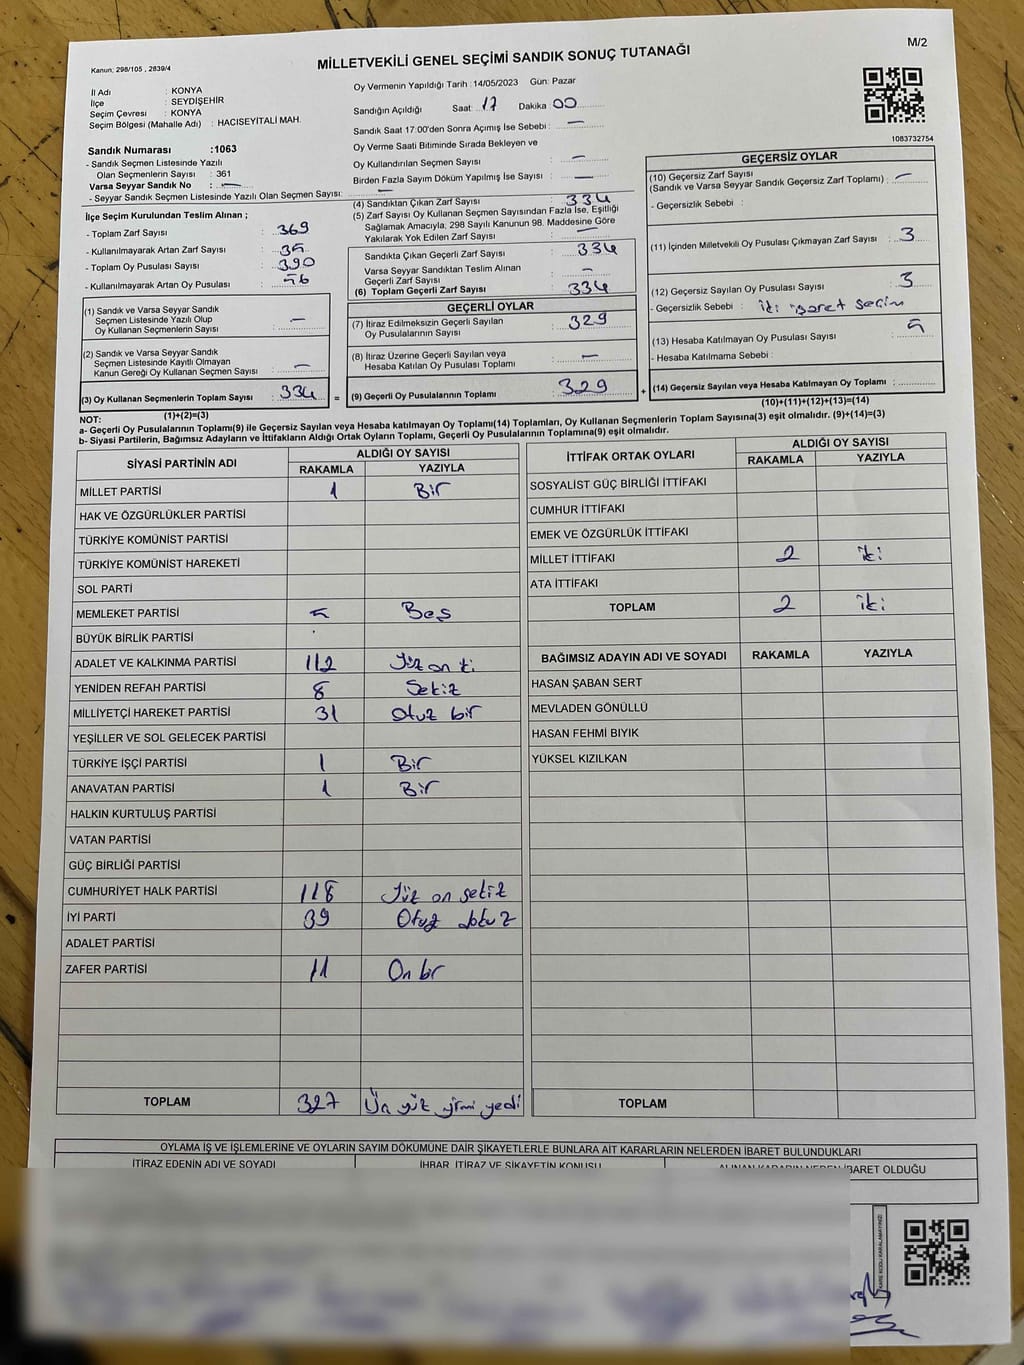 M/2
Kanun: 298/105 , 2839/4
MİLLETVEKİLİ GENEL SEÇİMİ SANDIK SONUÇ TUTANAĞI
İl Adı : KONYA
İlçe : SEYDİŞEHİR
Seçim Çevresi : KONYA
Seçim Bölgesi (Mahalle Adı) : HACISEYİTALİ MAH.
Sandık Numarası :1063
- Sandık Seçmen Listesinde Yazılı
Olan Seçmenlerin Sayısı : 361
Varsa Seyyar Sandık No : —
- Seyyar Sandık Seçmen Listesinde Yazılı Olan Seçmen Sayısı: —
Oy Vermenin Yapıldığı Tarih : 14/05/2023 Gün: Pazar
Sandığın Açıldığı Saat: 17 Dakika 00
Sandık Saat 17:00'den Sonra Açımış İse Sebebi : —
Oy Verme Saati Bitiminde Sırada Bekleyen ve
Oy Kullandırılan Seçmen Sayısı : —
Birden Fazla Sayım Döküm Yapılmış İse Sayısı : —
1083732754
İlçe Seçim Kurulundan Teslim Alınan ;
- Toplam Zarf Sayısı : 369
- Kullanılmayarak Artan Zarf Sayısı : 35
- Toplam Oy Pusulası Sayısı : 390
- Kullanılmayarak Artan Oy Pusulası : 56
(1) Sandık ve Varsa Seyyar Sandık
Seçmen Listesinde Yazılı Olup
Oy Kullanan Seçmenlerin Sayısı : —
(2) Sandık ve Varsa Seyyar Sandık
Seçmen Listesinde Kayıtlı Olmayan
Kanun Gereği Oy Kullanan Seçmen Sayısı : —
(3) Oy Kullanan Seçmenlerin Toplam Sayısı : 334 =
(1)+(2)=(3)
(4) Sandıktan Çıkan Zarf Sayısı : 334
(5) Zarf Sayısı Oy Kullanan Seçmen Sayısından Fazla İse, Eşitliği
Sağlamak Amacıyla, 298 Sayılı Kanunun 98. Maddesine Göre
Yakılarak Yok Edilen Zarf Sayısı : —
Sandıkta Çıkan Geçerli Zarf Sayısı : 334
Varsa Seyyar Sandıktan Teslim Alınan
Geçerli Zarf Sayısı : —
(6) Toplam Geçerli Zarf Sayısı : 334
GEÇERLİ OYLAR
(7) İtiraz Edilmeksizin Geçerli Sayılan
Oy Pusulalarının Sayısı : 329
(8) İtiraz Üzerine Geçerli Sayılan veya
Hesaba Katılan Oy Pusulası Toplamı : —
(9) Geçerli Oy Pusulalarının Toplamı : 329 +
GEÇERSİZ OYLAR
(10) Geçersiz Zarf Sayısı
(Sandık ve Varsa Seyyar Sandık Geçersiz Zarf Toplamı) : —
- Geçersizlik Sebebi :
(11) İçinden Milletvekili Oy Pusulası Çıkmayan Zarf Sayısı : 3
(12) Geçersiz Sayılan Oy Pusulası Sayısı : 3
- Geçersizlik Sebebi : iki işaret seçim
(13) Hesaba Katılmayan Oy Pusulası Sayısı : 5
- Hesaba Katılmama Sebebi :
(14) Geçersiz Sayılan veya Hesaba Katılmayan Oy Toplamı :
(10)+(11)+(12)+(13)=(14)
NOT:
a- Geçerli Oy Pusulasının Toplamı(9) ile Geçersiz Sayılan veya Hesaba katılmayan Oy Toplamı(14) Toplamları, Oy Kullanan Seçmenlerin Toplam Sayısına(3) eşit olmalıdır. (9)+(14)=(3)
b- Siyasi Partilerin, Bağımsız Adayların ve İttifakların Aldığı Ortak Oyların Toplamı, Geçerli Oy Pusulalarının Toplamına(9) eşit olmalıdır.
SİYASİ PARTİNİN ADI ALDIĞI OY SAYISI
RAKAMLA YAZIYLA
MİLLET PARTİSİ 1 Bir
HAK VE ÖZGÜRLÜKLER PARTİSİ
TÜRKİYE KOMÜNİST PARTİSİ
TÜRKİYE KOMÜNİST HAREKETİ
SOL PARTİ
MEMLEKET PARTİSİ 5 Beş
BÜYÜK BİRLİK PARTİSİ
ADALET VE KALKINMA PARTİSİ 112 Yüz on iki
YENİDEN REFAH PARTİSİ 8 Sekiz
MİLLİYETÇİ HAREKET PARTİSİ 31 Otuz bir
YEŞİLLER VE SOL GELECEK PARTİSİ
TÜRKİYE İŞÇİ PARTİSİ 1 Bir
ANAVATAN PARTİSİ 1 Bir
HALKIN KURTULUŞ PARTİSİ
VATAN PARTİSİ
GÜÇ BİRLİĞİ PARTİSİ
CUMHURİYET HALK PARTİSİ 118 Yüz on sekiz
İYİ PARTİ 39 Otuz dokuz
ADALET PARTİSİ
ZAFER PARTİSİ 11 On bir
TOPLAM 327 Üç yüz yirmi yedi
İTTİFAK ORTAK OYLARI ALDIĞI OY SAYISI
RAKAMLA YAZIYLA
SOSYALİST GÜÇ BİRLİĞİ İTTİFAKI
CUMHUR İTTİFAKI
EMEK VE ÖZGÜRLÜK İTTİFAKI
MİLLET İTTİFAKI 2 iki
ATA İTTİFAKI
TOPLAM 2 iki
BAĞIMSIZ ADAYIN ADI VE SOYADI RAKAMLA YAZIYLA
HASAN ŞABAN SERT
MEVLADEN GÖNÜLLÜ
HASAN FEHMİ BIYIK
YÜKSEL KIZILKAN
TOPLAM
OYLAMA İŞ VE İŞLEMLERİNE VE OYLARIN SAYIM DÖKÜMÜNE DAİR ŞİKAYETLERLE BUNLARA AİT KARARLARIN NELERDEN İBARET BULUNDUKLARI
İTİRAZ EDENİN ADI VE SOYADI İHBAR, İTİRAZ VE ŞİKAYETİN KONUSU ALINAN KARARIN NEDEN İBARET OLDUĞU
KARE KODU KARALAMAYINIZ!